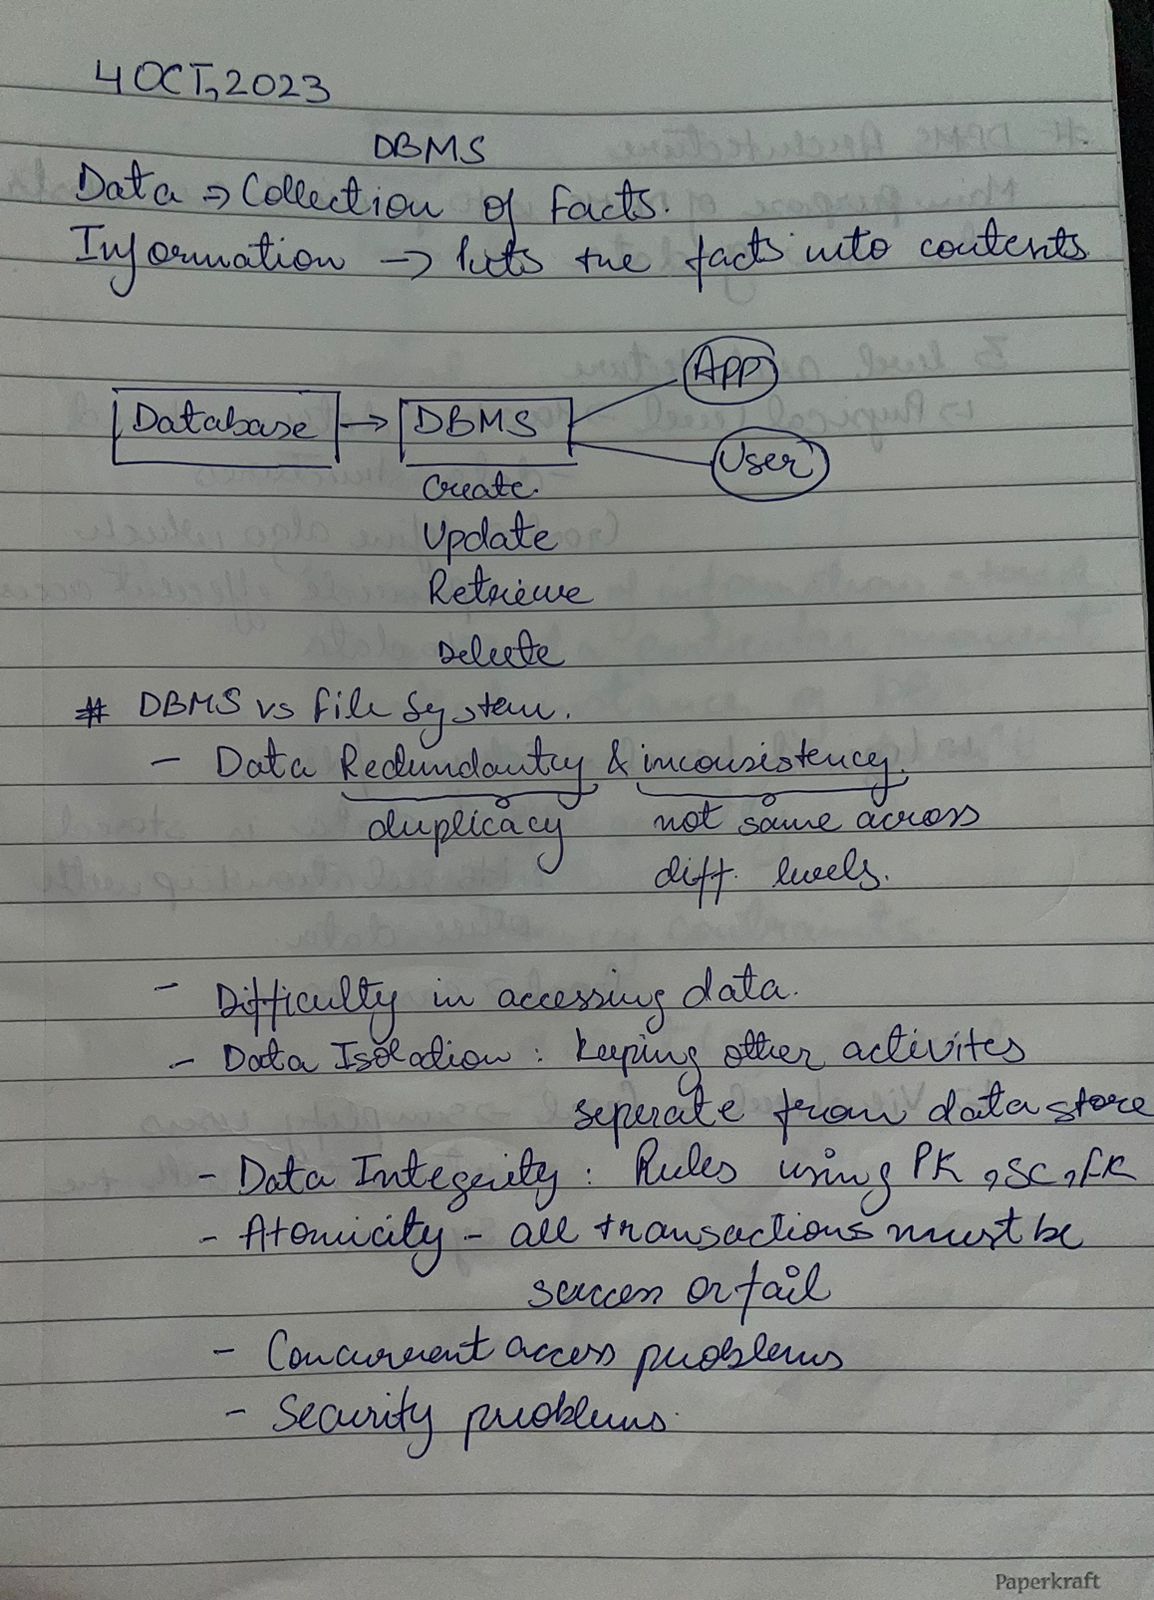 4 OCT, 2023
DBMS
Data => Collection of facts.
Information -> Puts the facts into contents
Database -> DBMS
App
User
Create.
Update
Retrieve
Delete
# DBMS vs File System.
- Data Redundantcy & inconsistency.
duplicacy not same across
diff. levels.
- Difficulty in accessing data.
- Data Isolation : keeping other activites
seperate from data store
- Data Integerity : Rules using PK, SC, FK
- Atomicity - all transactions must be
success or fail
- Concurrent access problems
- Security problems.
Paperkraft